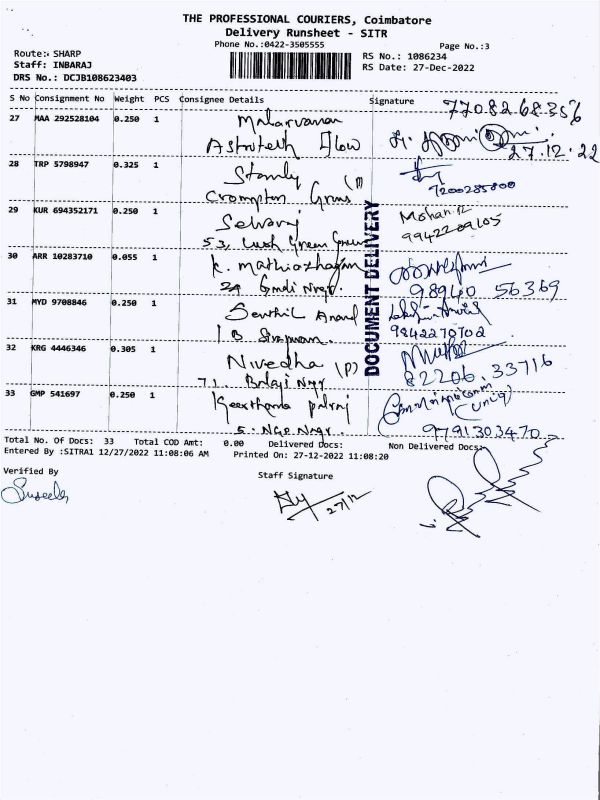 THE PROFESSIONAL COURIERS, Coimbatore
Delivery Runsheet - SITR
Phone No.:0422-3505555
Page No.:3
Route:- SHARP
Staff: INBARAJ
DRS No.: DCJB108623403
RS No.: 1086234
RS Date: 27-Dec-2022
S No Consignment No Weight PCS Consignee Details Signature
7708268356
27 MAA 292528104 0.250 1 Malarvanan
Astrotech Flow
27.12.22
28 TRP 5798947 0.325 1 Stanly
Crompton Greaves (P)
7200285800
29 KUR 694352171 0.250 1 Selvaraj Mohan
53, Lush Green 9942209105
30 ARR 10283710 0.055 1 K. Mathiazhagan
24 98940 56369
31 MYD 9708846 0.250 1 Senthil Anand
1 B 9842270702
32 KRG 4446346 0.305 1 Nivedha (P)
71. Balaji Ngr 82206.33716
33 GMP 541697 0.250 1 Keerthana
5. Ngo Nagr. 9791303470
DOCUMENT DELIVERY
Total No. Of Docs: 33 Total COD Amt: 0.00 Delivered Docs: Non Delivered Docs:
Entered By :SITRA1 12/27/2022 11:08:06 AM Printed On: 27-12-2022 11:08:20
Verified By
Staff Signature
27/12